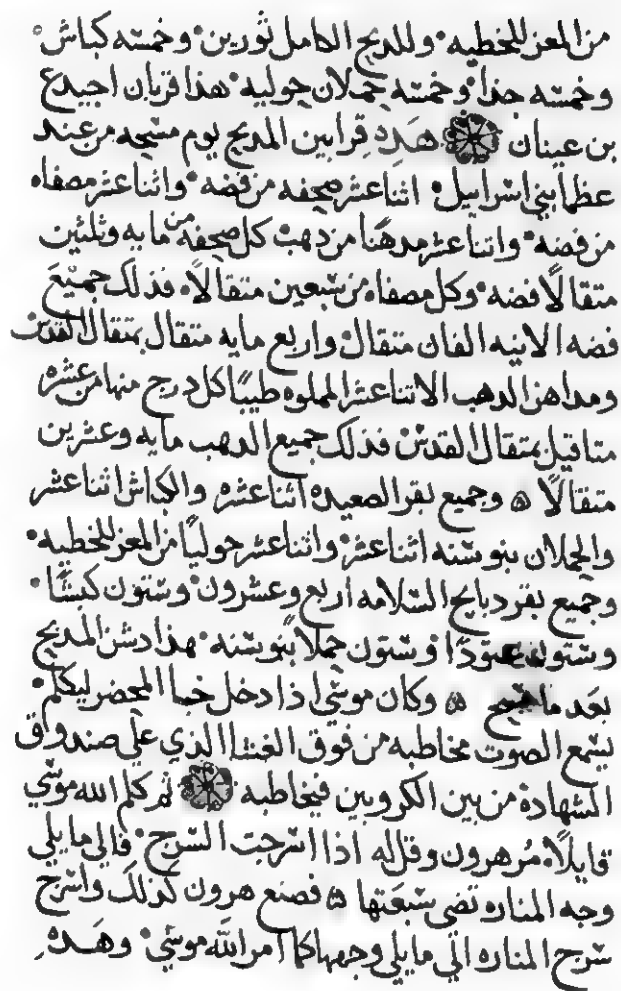 من المعز للخطيه وللذبح الكامل ثورين وخمسه كباش
وخمسه جدا وخمسه حملان حوليه هذا قربان اجيدع
بن عينان هذه قرابين المدبح يوم مسحه من عند
عظما بني اسراييل اثنا عشر صحفه من فضه واثنا عشر مصفاه
من فضه واثنا عشر مدهنا من دهب كل صحفه من مايه وثلثين
متقالًا فضه وكل مصفاه من سبعين متقالًا فذلك جميع
فضه الانيه الفان متقال واربع مايه متقال بمتقال القدس
ومداهن الدهب الاتنا عشر المملوه طيبًا كل درج منها من عشره
متاقيل بمتقال القدس فذلك جميع الدهب مايه وعشرين
متقالًا ه وجميع بقر الصعيده اثنا عشره والكباش اثنا عشر
والحملان بنو سنه اثنا عشر واثنا عشر حوليًا من المعز للخطيه
وجميع بقر دبايح السلامه اربع وعشرون وستون كبشًا
وستون عتودًا وستون حملًا بنو سنه هذا دشن المدبح
بعد ما مسح ه وكان موسى اذا دخل خبا المحضر ليكلم
يسمع الصوت مخاطبه من فوق الغشا الذي على صندوق
الشهاده من بين الكروبين فيخاطبه ثم كلم الله موسي
قايلًا مُر هرون وقل له اذا اسرجت السرج فالي ما يلي
وجه المناره تضى سبعتها ه فصنع هرون كذلك واسرج
سرج المناره الي ما يلي وجهها كما امر الله موسي وهذه